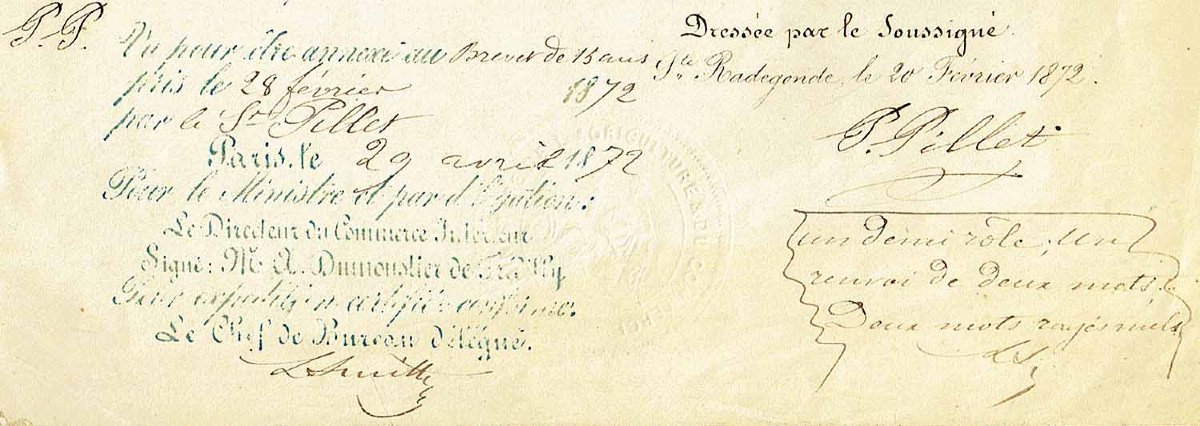 P. P.
Vu pour être annexé au Brevet de 15 ans
pris le 28 février 1872
par le Sr Pillet
Paris, le 29 avril 1872
Pour le Ministre et par délégation:
Le Directeur du Commerce Intérieur
Signé: M. A. Dumoustier de
Pour expédition certifiée conforme:
Le Chef de Bureau délégué.
Dressée par le Soussigné
Ste Radegonde, le 20 Février 1872.
P. Pillet
un demi rôle. Un
renvoi de deux mots.
Deux mots rayés nuls
AGRICULTURE & DU